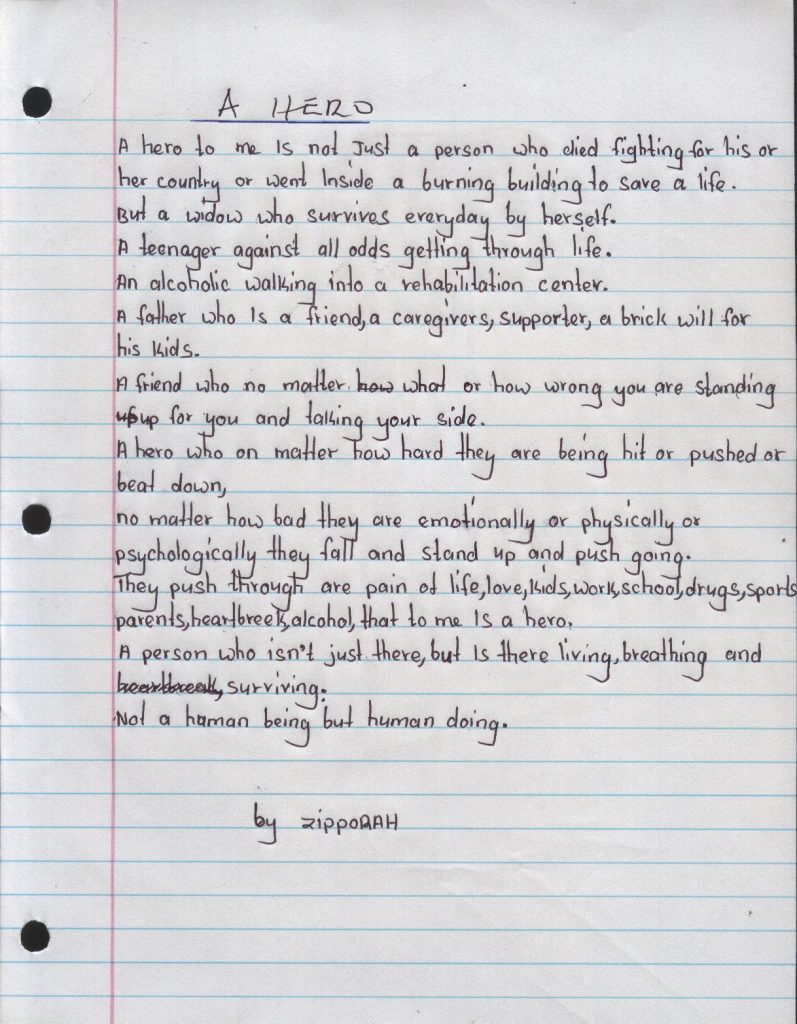 A HERO
A hero to me Is not Just a person who died fighting for his or
her country or went Inside a burning building to save a life.
But a widow who survives everyday by herself.
A teenager against all odds getting through life.
An alcoholic walking into a rehabilitation center.
A father who Is a friend, a caregivers, supporter, a brick will for
his kids.
A friend who no matter how what or how wrong you are standing
up up for you and talking your side.
A hero who on matter how hard they are being hit or pushed or
beat down,
no matter how bad they are emotionally or physically or
psychologically they fall and stand up and push going.
They push through are pain of life, love, kids, work, school, drugs, sports
parents, heartbreek, alcohol, that to me Is a hero.
A person who isn't just there, but Is there living, breathing and
heartbreak, surviving.
Not a human being but human doing.
by zippoRAH